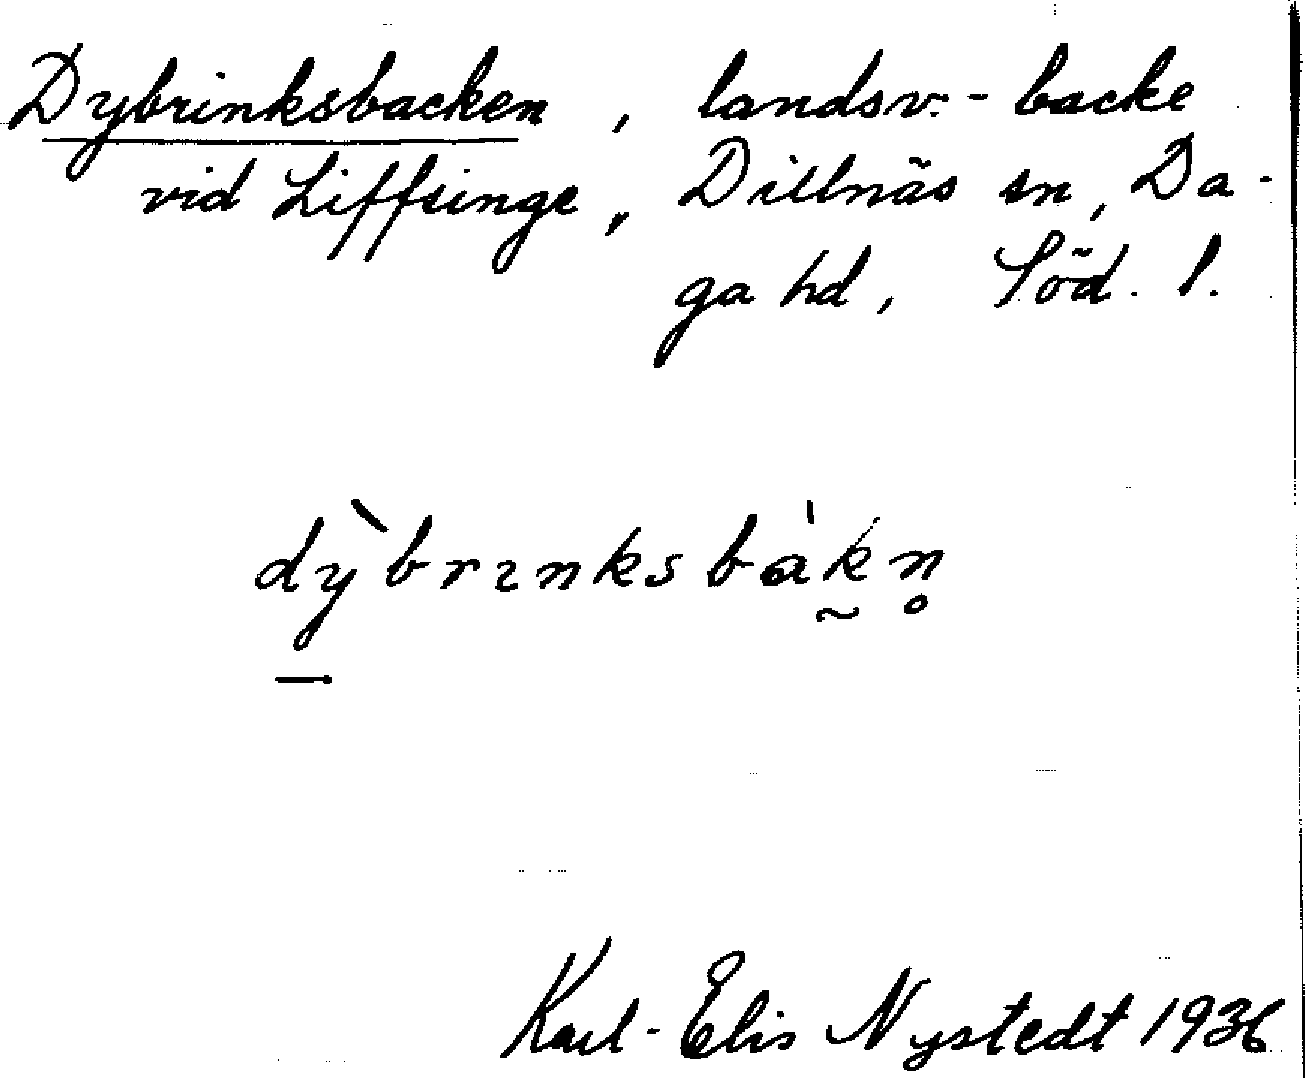 Dybrinksbacken, landsv.-backe
vid Liffsinge, Dillnäs sn, Da-
ga hd, Söd. l.
dỳ̱brɪnksbàk̰n̥
Karl-Elis Nystedt 1936